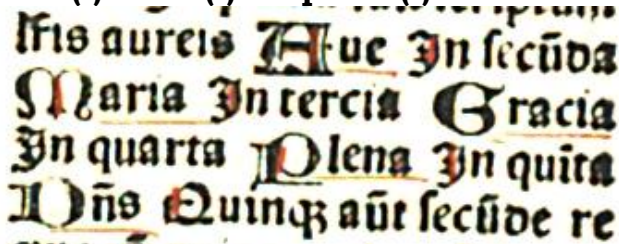 lris aureis Aue In secūda
Maria In tercia Gracia
In quarta Plena In quīta
Dn̄s Quinqꝫ aūt secūde re